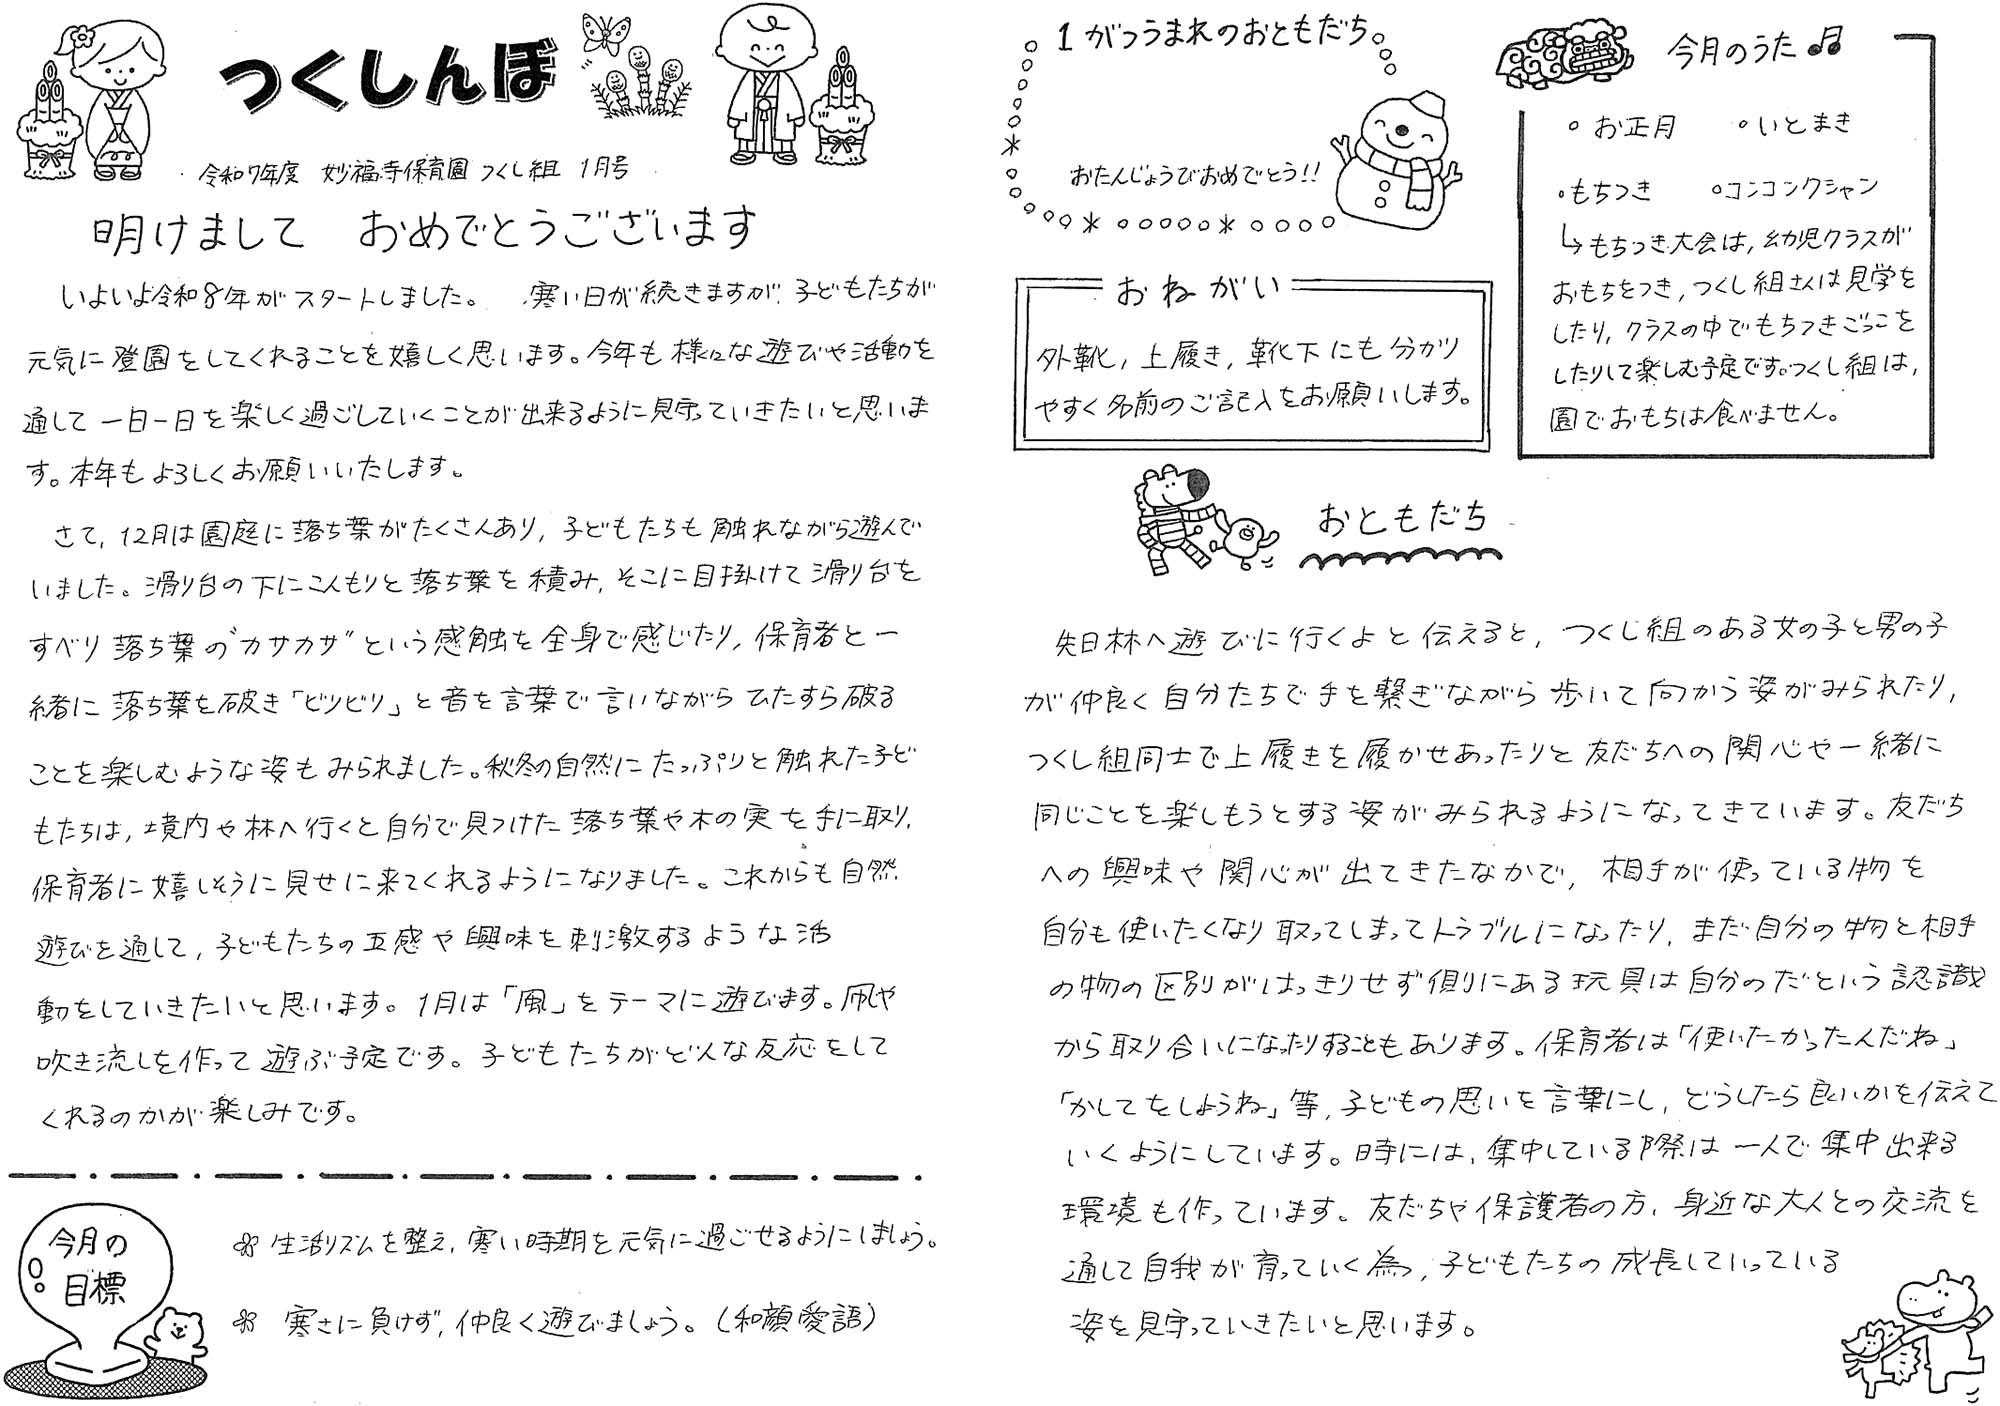 つくしんぼ
令和7年度 妙福寺保育園 つくし組 1月号
明けまして おめでとうございます
いよいよ令和8年がスタートしました。 寒い日が続きますが、子どもたちが
元気に登園をしてくれることを嬉しく思います。今年も様々な遊びや活動を
通して一日一日を楽しく過ごしていくことが出来るように見守っていきたいと思いま
す。本年もよろしくお願いいたします。
さて、12月は園庭に落ち葉がたくさんあり、子どもたちも触れながら遊んで
いました。滑り台の下にこんもりと落ち葉を積み、そこに目掛けて滑り台を
すべり落ち葉の"カサカサ"という感触を全身で感じたり、保育者と一
緒に落ち葉を破き「ビリビリ」と音を言葉で言いながらひたすら破る
ことを楽しむような姿もみられました。秋冬の自然にたっぷりと触れた子ど
もたちは、境内や林へ行くと自分で見つけた落ち葉や木の実を手に取り、
保育者に嬉しそうに見せに来てくれるようになりました。これからも自然
遊びを通して、子どもたちの五感や興味を刺激するような活
動をしていきたいと思います。1月は「風」をテーマに遊びます。凧や
吹き流しを作って遊ぶ予定です。子どもたちがどんな反応をして
くれるのかが楽しみです。
今月の
目標
生活リズムを整え、寒い時期を元気に過ごせるようにしましょう。
寒さに負けず、仲良く遊びましょう。(和顔愛語)
1がつうまれのおともだち
おたんじょうびおめでとう!!
おねがい
外靴、上履き、靴下にも分かり
やすく名前のご記入をお願いします。
今月のうた♫
・お正月 ・いとまき
・もちつき ・コンコンクシャン
↳もちつき大会は、幼児クラスが
おもちをつき、つくし組さんは見学を
したり、クラスの中でもちつきごっこを
したりして楽しむ予定です。つくし組は、
園でおもちは食べません。
おともだち
知日林へ遊びに行くよと伝えると、つくし組のある女の子と男の子
が仲良く自分たちで手を繋ぎながら歩いて向かう姿がみられたり、
つくし組同士で上履きを履かせあったりと友だちへの関心や一緒に
同じことを楽しもうとする姿がみられるようになってきています。友だち
への興味や関心が出てきたなかで、相手が使っている物を
自分も使いたくなり取ってしまってトラブルになったり、まだ自分の物と相手
の物の区別がはっきりせず側にある玩具は自分のだという認識
から取り合いになったりすることもあります。保育者は「使いたかったんだね」
「かしてをしようね」等、子どもの思いを言葉にし、どうしたら良いかを伝えて
いくようにしています。時には、集中している際は一人で集中出来る
環境も作っています。友だちや保護者の方、身近な大人との交流を
通して自我が育っていく為、子どもたちの成長していっている
姿を見守っていきたいと思います。